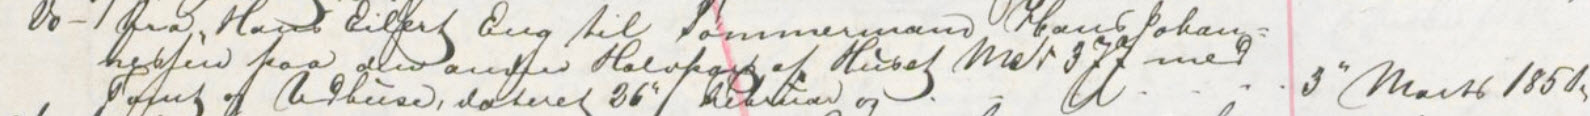 Do - fra Hans Eilert Eng til Tømmermand Hans Johan=
nessen paa den anden Halvpart af Huset Mat 377 med
Tomt og Udhuse, dateret 26" Februar og - - - - - 3" Marts 1851.